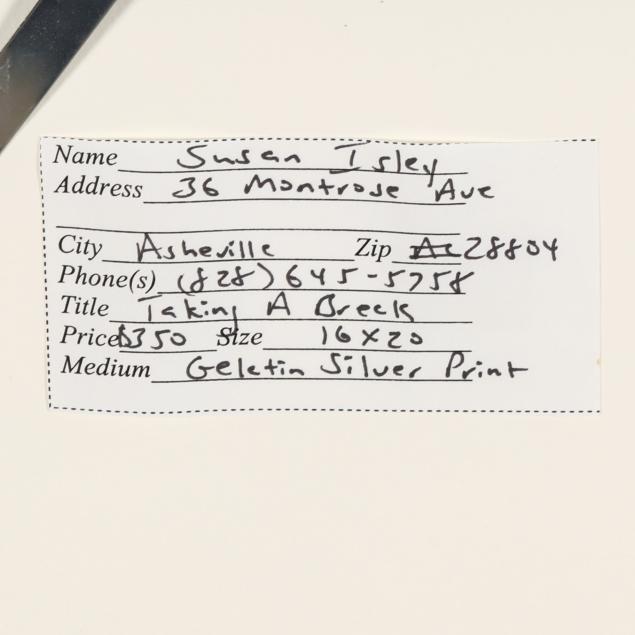 Name Susan Isley
Address 36 Montrose Ave
City Asheville Zip 28804
Phone(s) (828) 645-5758
Title Taking A Break
Price $350 Size 16x20
Medium Geletin Silver Print